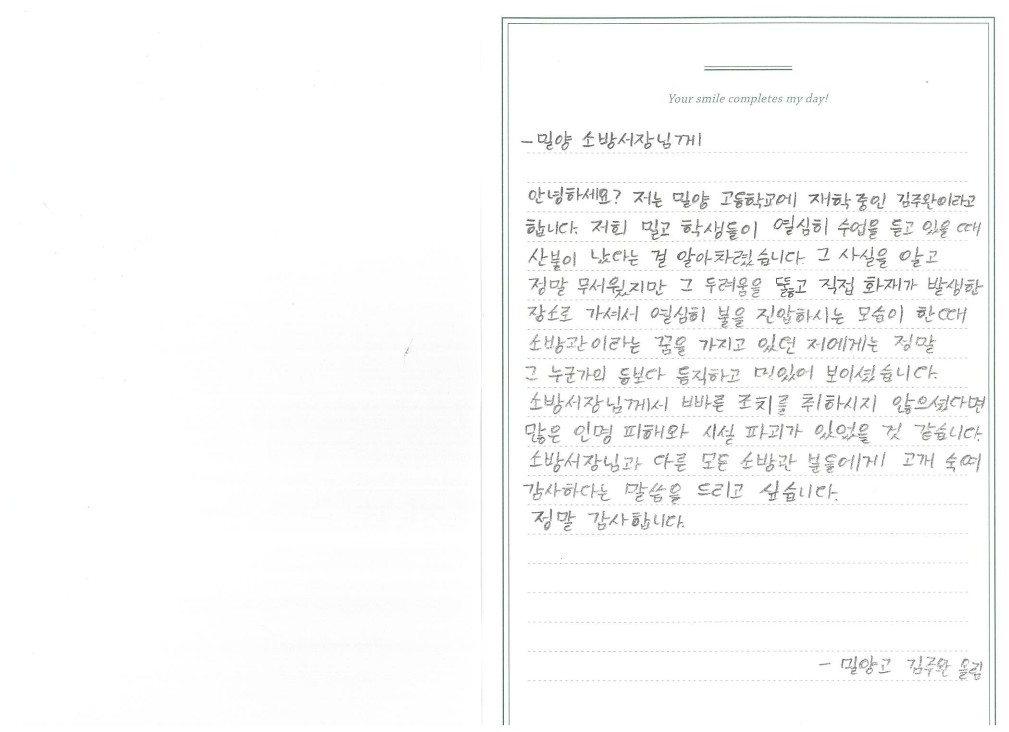 Your smile completes my day!
- 밀양 소방서장님께
안녕하세요? 저는 밀양 고등학교에 재학 중인 김주완이라고
합니다. 저희 밀고 학생들이 열심히 수업을 듣고 있을 때
산불이 났다는 걸 알아차렸습니다. 그 사실을 알고
정말 무서웠지만 그 두려움을 뚫고 직접 화재가 발생한
장소로 가셔서 열심히 불을 진압하시는 모습이 한때
소방관이라는 꿈을 가지고 있던 저에게는 정말
그 누군가의 등보다 듬직하고 멋있어 보이셨습니다.
소방서장님께서 빠른 조치를 취하시지 않으셨다면
많은 인명 피해와 시설 파괴가 있었을 것 같습니다.
소방서장님과 다른 모든 소방관 분들에게 고개 숙여
감사하다는 말씀을 드리고 싶습니다.
정말 감사합니다.
- 밀양고 김주완 올림